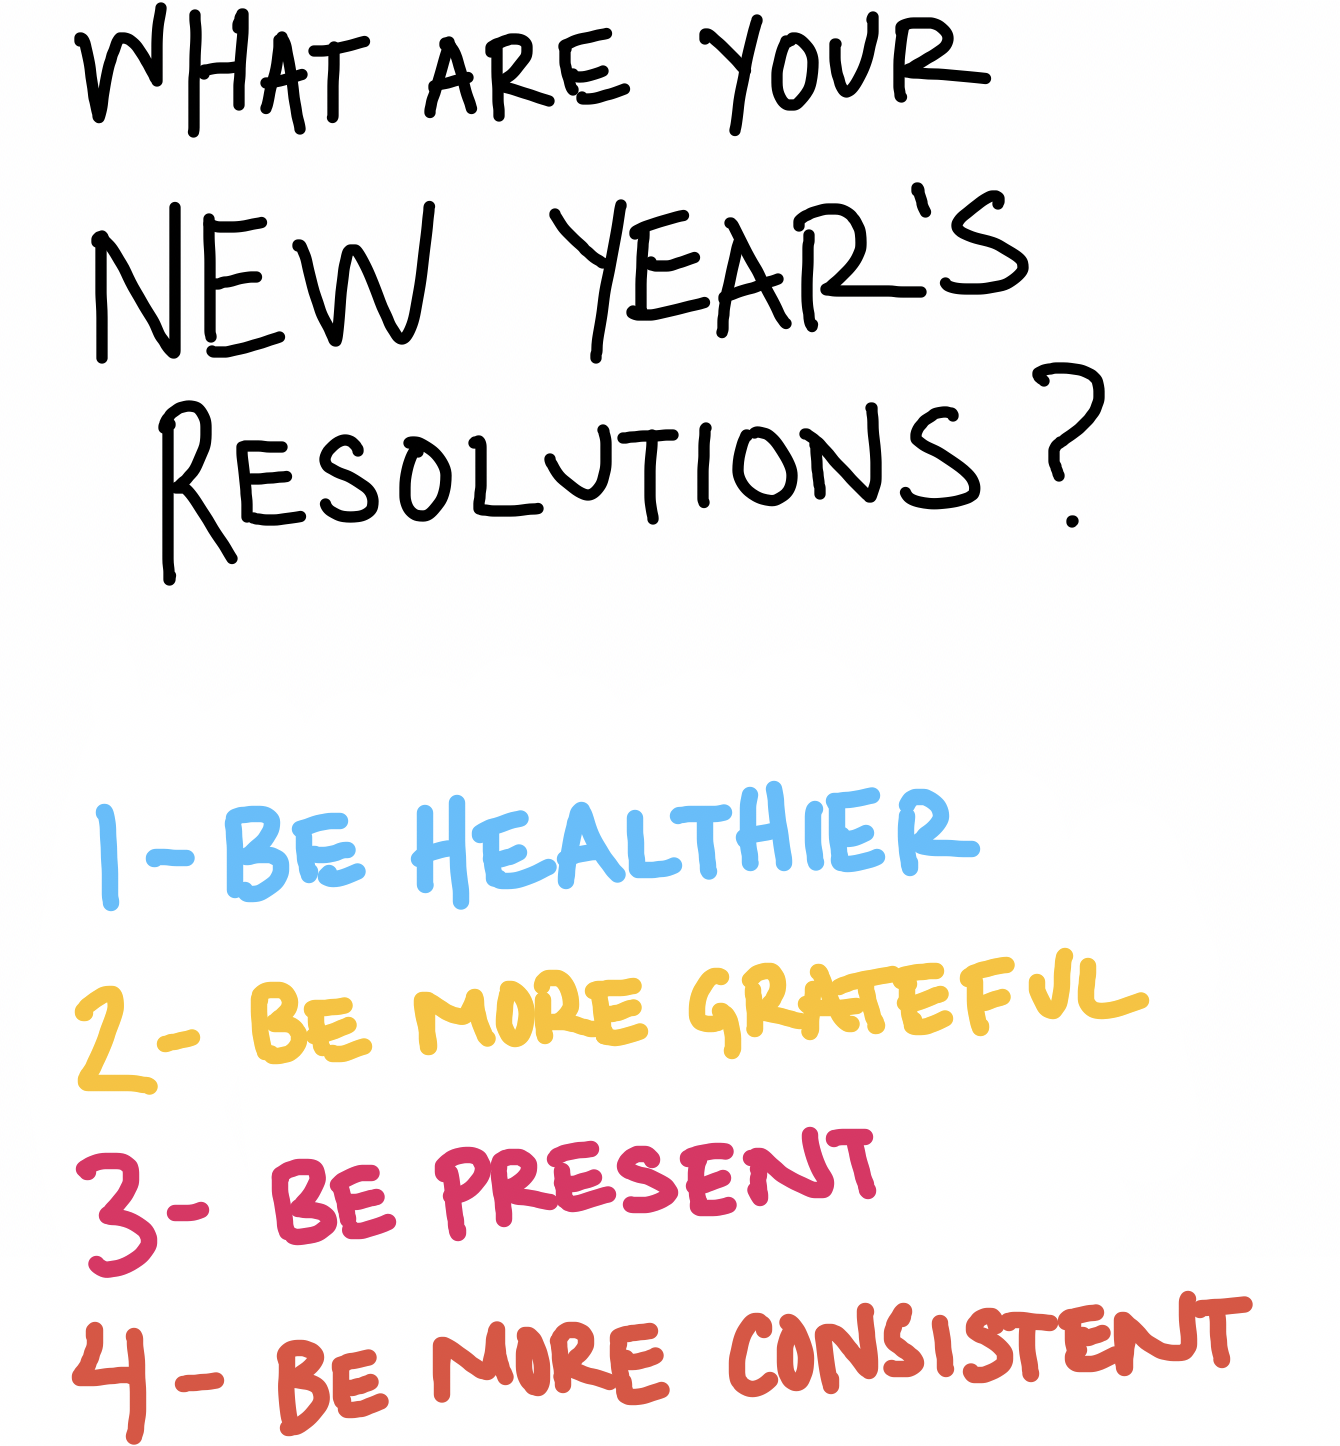 WHAT ARE YOUR
NEW YEAR'S
RESOLUTIONS?
1- BE HEALTHIER
2- BE MORE GRATEFUL
3- BE PRESENT
4- BE MORE CONSISTENT